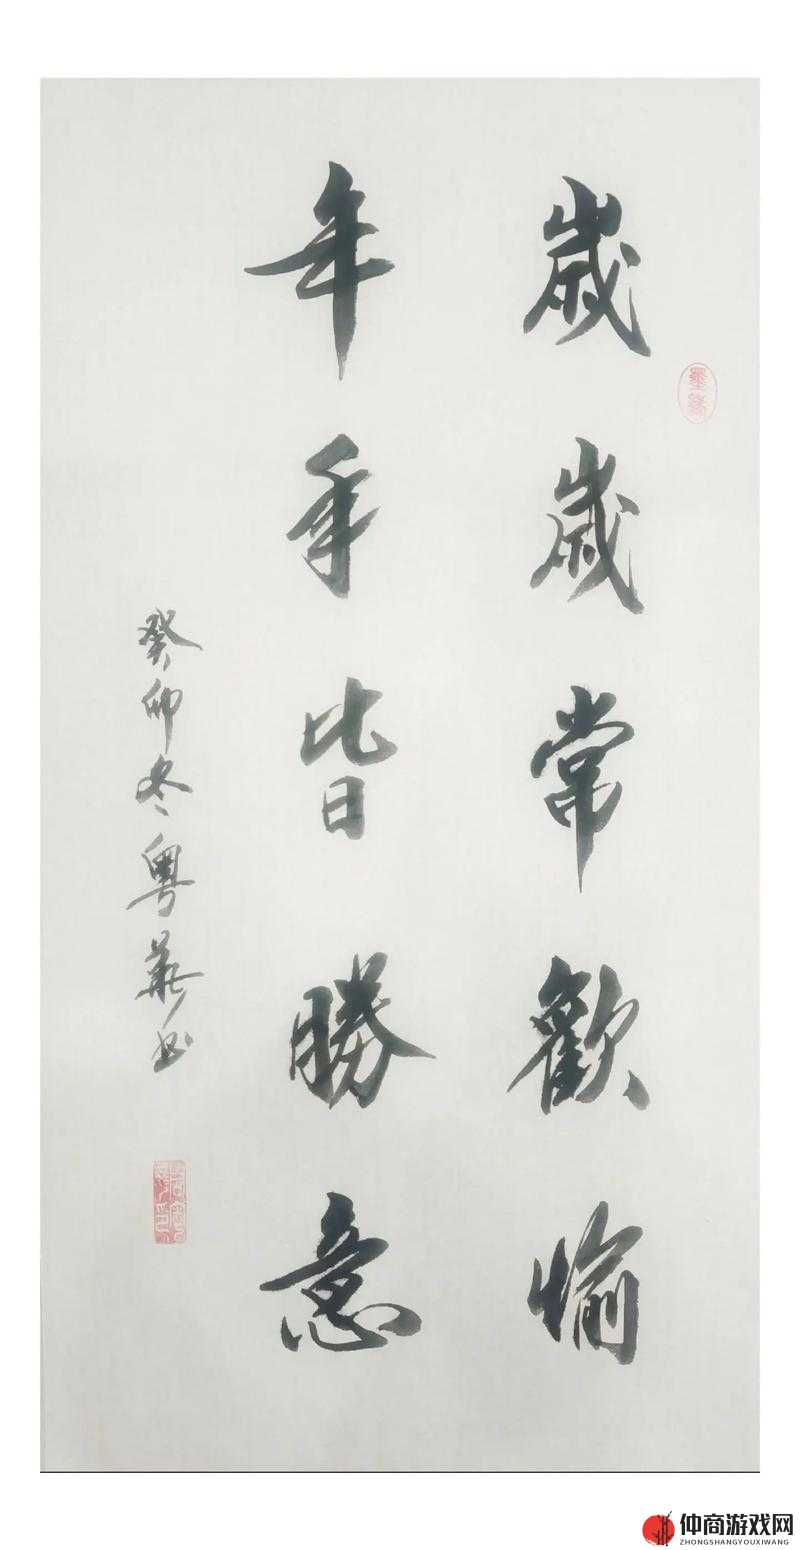 歲歲常歡愉
年年皆勝意
癸卯冬粵華书
仲商游戏网
ZHONGSHANGYOUXIWANG